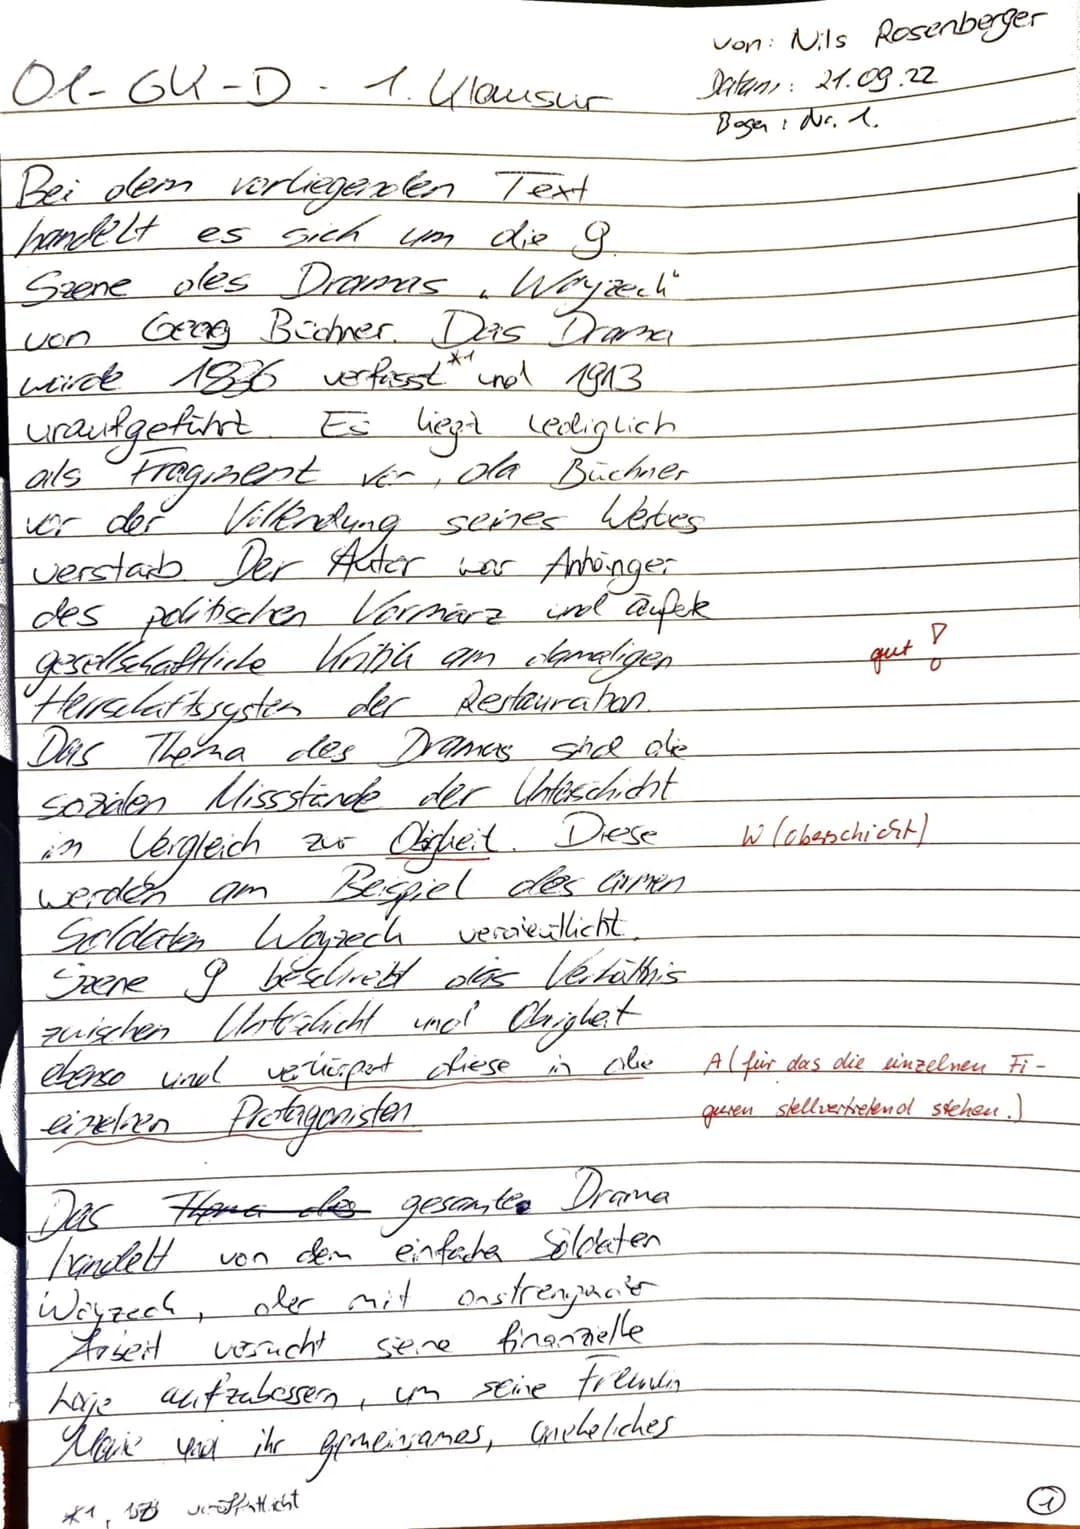 von: Nils Rosenberger
Datum: 21.09.22
Bogen: Nr. 1.
Q1-GK-D - 1. Klausur
Bei dem vorliegenden Text
handelt es sich um die 9.
Szene des Dramas „Woyzeck“
von Georg Büchner. Das Drama
wurde 1836 verfasst *1 und 1913
uraufgeführt. Es liegt lediglich
als Fragment vor, da Büchner
vor der Vollendung seines Werkes
verstarb. Der Autor war Anhänger
des politischen Vormärz und äußerte
gesellschaftliche Kritik am damaligen
gut!
Herrschaftssystem der Restauration.
Das Thema des Dramas sind die
sozialen Missstände der Unterschicht
in Vergleich zur Obigkeit. Diese
W (Oberschicht)
werden am Beispiel des armen
Soldaten Woyzeck verdeutlicht.
Szene 9 beschreibt das Verhältnis
zwischen Unterschicht und Obrigkeit
ebenso und verkörpert diese in die
A (für das die einzelnen Fi-
einzelnen Protagonisten.
guren stellvertretend stehen.)
Das Thema des gesamte Drama
handelt von dem einfachen Soldaten
Woyzeck, der mit anstrengender
Arbeit versucht seine finanzielle
Lage aufzubessern, um seine Freundin
Marie und ihr gemeinsames, uneheliches
*1, veröffentlicht
1